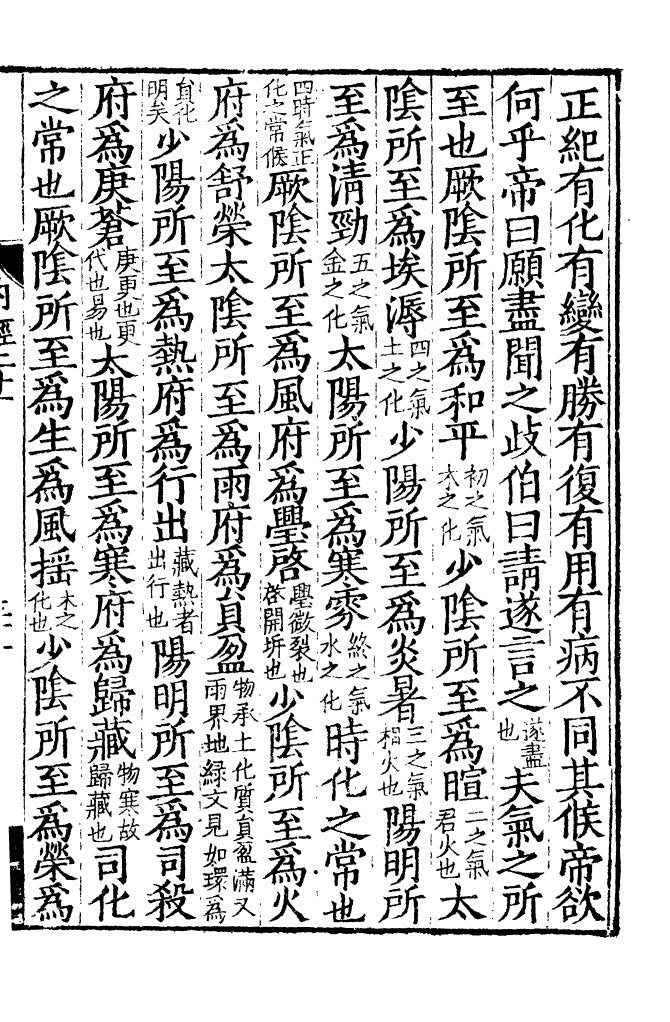 正紀有化有變有勝有復有用有病不同其候帝欲
何乎帝曰願盡聞之歧伯曰請遂言之遂盡也夫氣之所
至也厥陰所至爲和平初之氣木之化少陰所至爲暄二之氣君火也太
陰所至爲埃溽四之氣土之化少陽所至爲炎暑三之氣相火也陽明所
至爲淸勁五之氣金之化太陽所至爲寒雰終之氣水之化時化之常也
四時氣正化之常候厥陰所至爲風府爲璺啓璺微裂也啓開坼也少陰所至爲火
府爲舒榮太陰所至爲雨府爲員盈物承土化質員盈滿又雨界地綠文見如環爲
員化明矣少陽所至爲熱府爲行出藏熱者出行也陽明所至爲司殺
府爲庚蒼庚更也更代也易也太陽所至爲寒府爲歸藏物寒故歸藏也司化
之常也厥陰所至爲生爲風揺木之化也少陰所至爲榮爲
內經二十